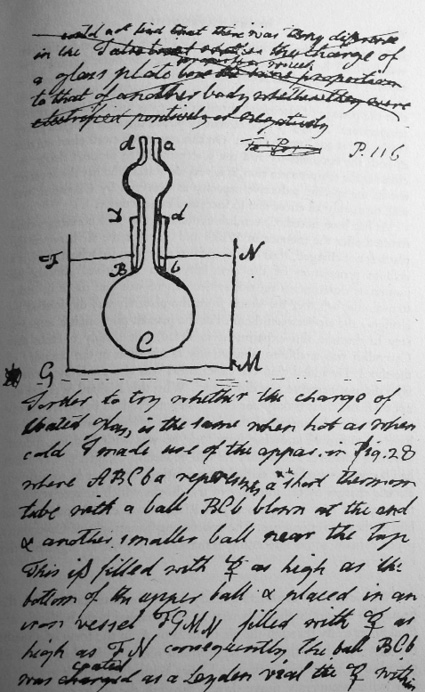 could not find that there was any difference
in the the charge of
a glass plate proportion
to that of another body whether they were
electrified positively or negatively
P. 116
A a
D d
F N
B b
C
G M
In order to try whether the charge of
coated glass is the same when hot as when
cold I made use of the appar. in Fig. 28
where ABCba represents a short thermom
tube with a ball BCb blown at the end
& another smaller ball near the top
This is filled with ☿ as high as the
bottom of the upper ball & placed in an
iron vessel FGMN filled with ☿ as
high as FN consequently the ball BCb
was coated as a Leyden vial the ☿ within